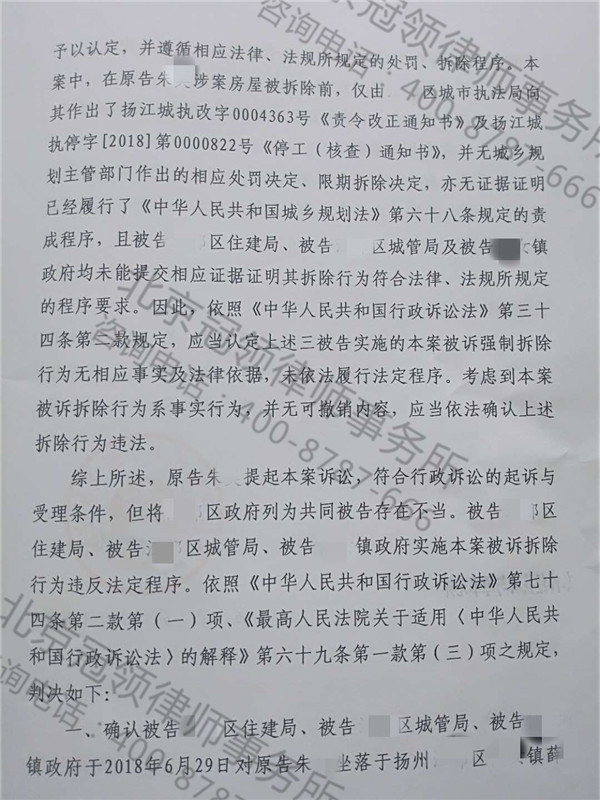 予以认定，并遵循相应法律、法规所规定的处罚、拆除程序。本
案中，在原告朱 涉案房屋被拆除前，仅由 区城市执法局向
其作出了扬江城执改字0004363号《责令改正通知书》及扬江城
执停字[2018]第0000822号《停工（核查）通知书》，并无城乡规
划主管部门作出的相应处罚决定、限期拆除决定，亦无证据证明
已经履行了《中华人民共和国城乡规划法》第六十八条规定的责
成程序，且被告 区住建局、被告 区城管局及被告 镇
政府均未能提交相应证据证明其拆除行为符合法律、法规所规定
的程序要求。因此，依照《中华人民共和国行政诉讼法》第三十
四条第二款规定，应当认定上述三被告实施的本案被诉强制拆除
行为无相应事实及法律依据，未依法履行法定程序。考虑到本案
被诉拆除行为系事实行为，并无可撤销内容，应当依法确认上述
拆除行为违法。
综上所述，原告朱 提起本案诉讼，符合行政诉讼的起诉与
受理条件，但将 区政府列为共同被告存在不当。被告 区
住建局、被告 区城管局、被告 镇政府实施本案被诉拆除
行为违反法定程序。依照《中华人民共和国行政诉讼法》第七十
四条第二款第（一）项、《最高人民法院关于适用〈中华人民共
和国行政诉讼法〉的解释》第六十九条第一款第（三）项之规定，
判决如下：
一、确认被告 区住建局、被告 区城管局、被告
镇政府于2018年6月29日对原告朱 坐落于扬州 区 镇薛
北京冠领律师事务所
咨询电话：400-8787-666
北京冠领律师事务所
咨询电话：400-8787-666
北京冠领律师事务所
咨询电话：400-8787-666